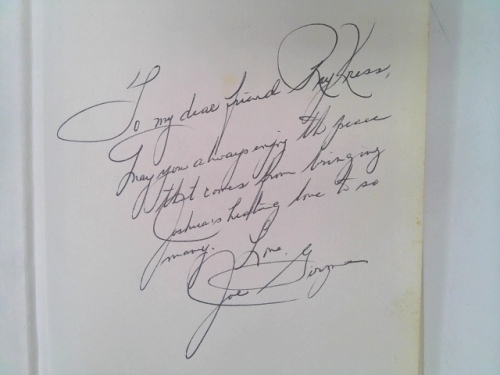 To my dear friend Ray Kress,
May you always enjoy the peace
that comes from bringing
Joshua's healing love to so
many. Love.
Joe Girzone